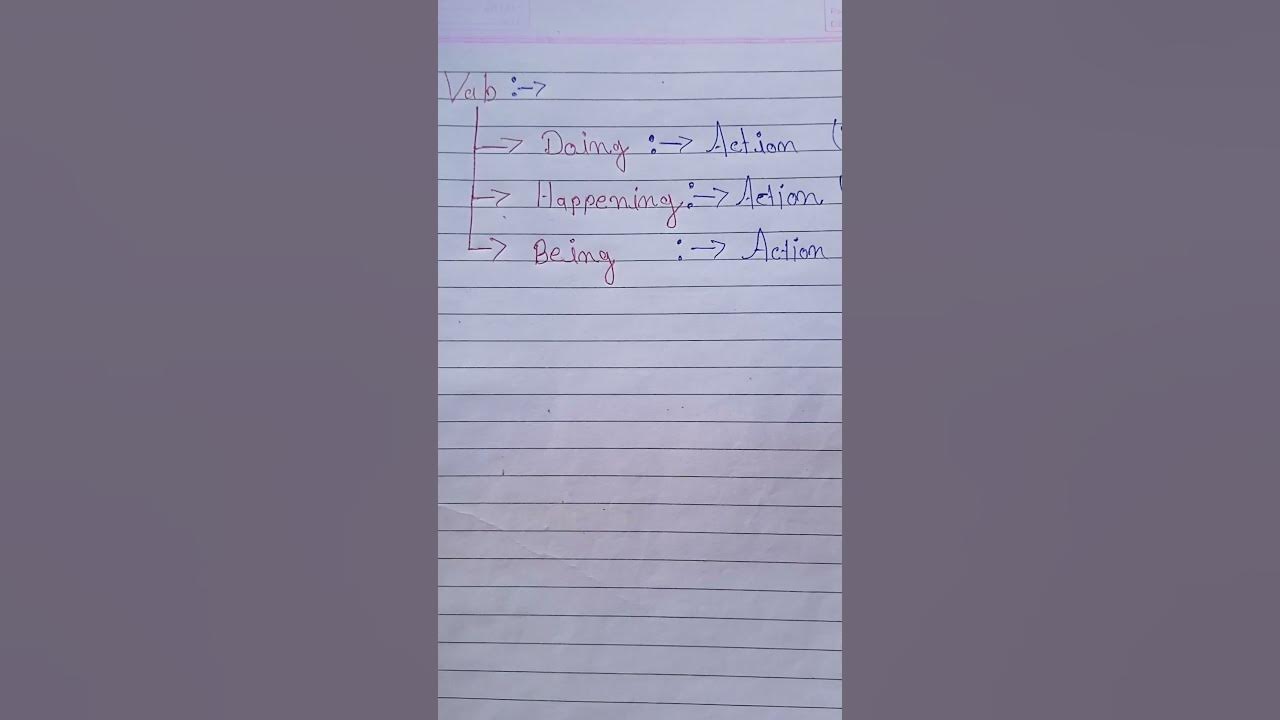 Vab :->
-> Doing :-> Action (
-> Happening :-> Action (
-> Being :-> Action